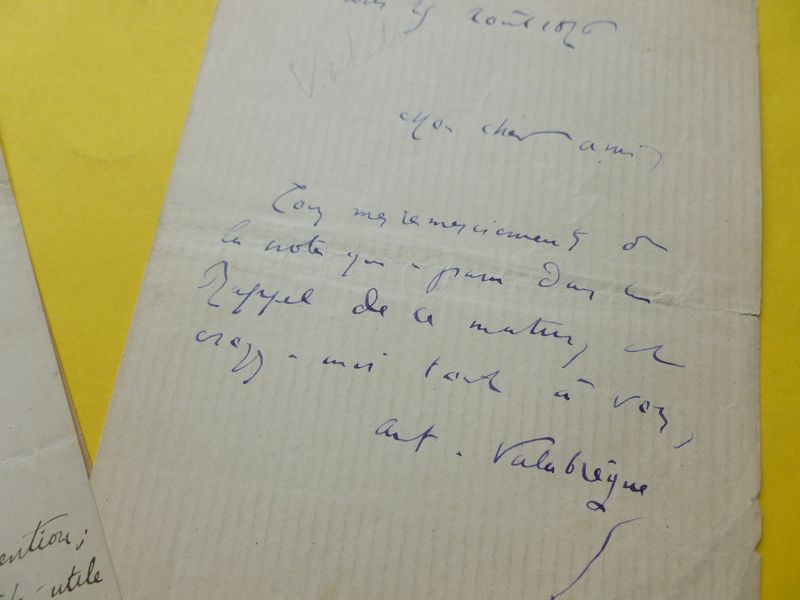 25 août 1876
Valab
Mon cher ami,
Tous mes remerciements de
la note qui a paru dans le
Rappel de ce matin, et
croyez-moi tout à vous,
Ant. Valabrègue
ention;
utile